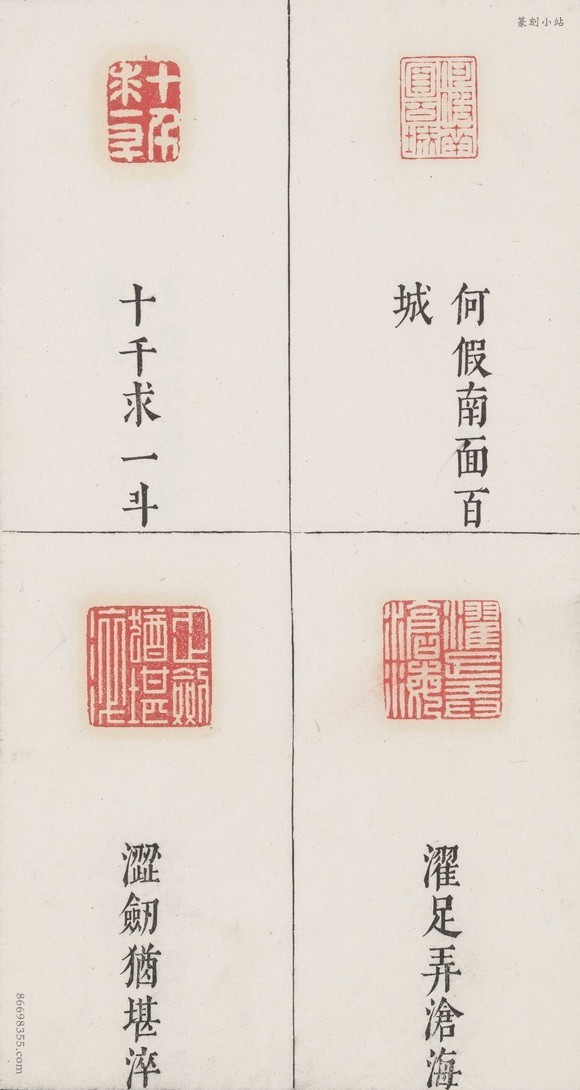 篆刻小站
何假南面百
城
十千求一斗
濯足弄滄海
澀劒猶堪淬
86698355.com